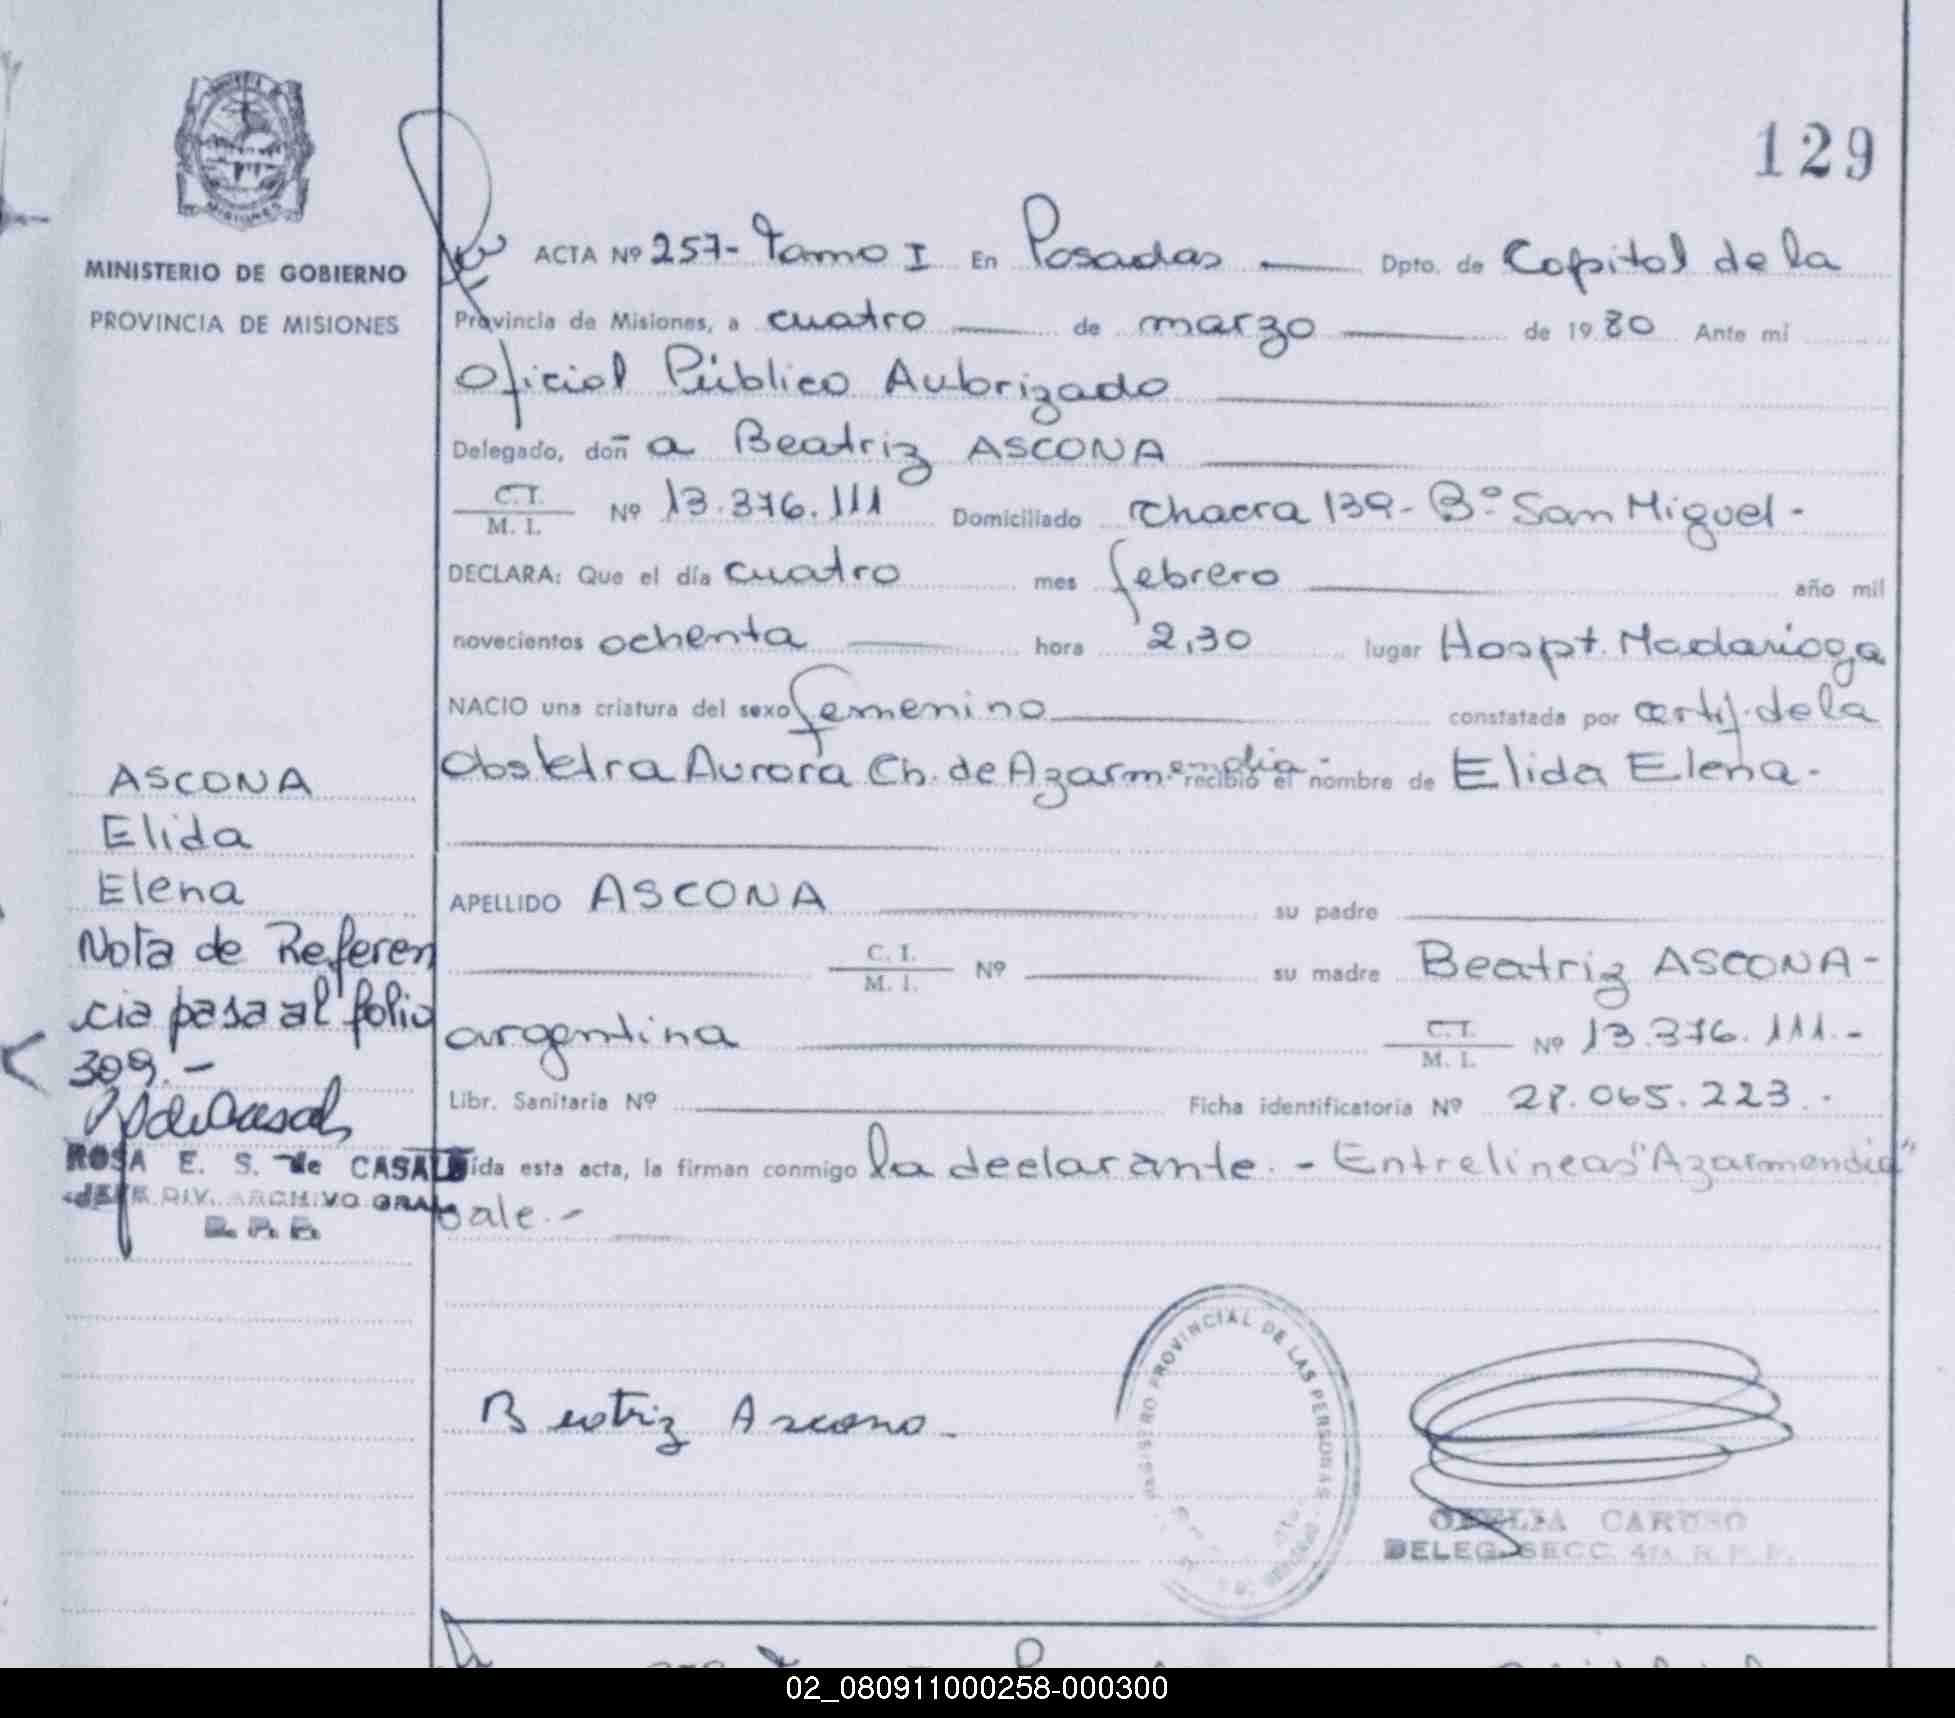 129
MINISTERIO DE GOBIERNO
PROVINCIA DE MISIONES
MISIONES
ACTA Nº 257- Tomo I En Posadas Dpto. de Capital de la
Provincia de Misiones, a cuatro de marzo de 1980 Ante mi
Oficial Público Autorizado
Delegado, doñ a Beatriz ASCONA
C.I.
M. I. Nº 13.376.111 Domiciliado Chacra 139- Bº San Miguel-
DECLARA: Que el día cuatro mes febrero año mil
novecientos ochenta hora 2,30 lugar Hospt. Madariaga
NACIO una criatura del sexo femenino constatada por certif. de la
Obstetra Aurora Ch. de Azarmendia- recibió el nombre de Elida Elena-
APELLIDO ASCONA su padre
C. I.
M. I. Nº su madre Beatriz ASCONA-
argentina C.I.
M. I. Nº 13.376.111.-
Libr. Sanitaria Nº Ficha identificatoria Nº 28.065.223.-
Leída esta acta, la firman conmigo la declarante.- Entrelineas "Azarmendia"
vale.-
ASCONA
Elida
Elena
Nota de Referen
cia pasa al folio
309.-
ROSA E. S. de CASALS
JEFE DIV. ARCHIVO GRAL
R.P.P.
Beatriz Ascona.
REGISTRO PROVINCIAL DE LAS PERSONAS
OFELIA CARUSO
DELEG. SECC. 4ta R. P. P.
02_080911000258-000300